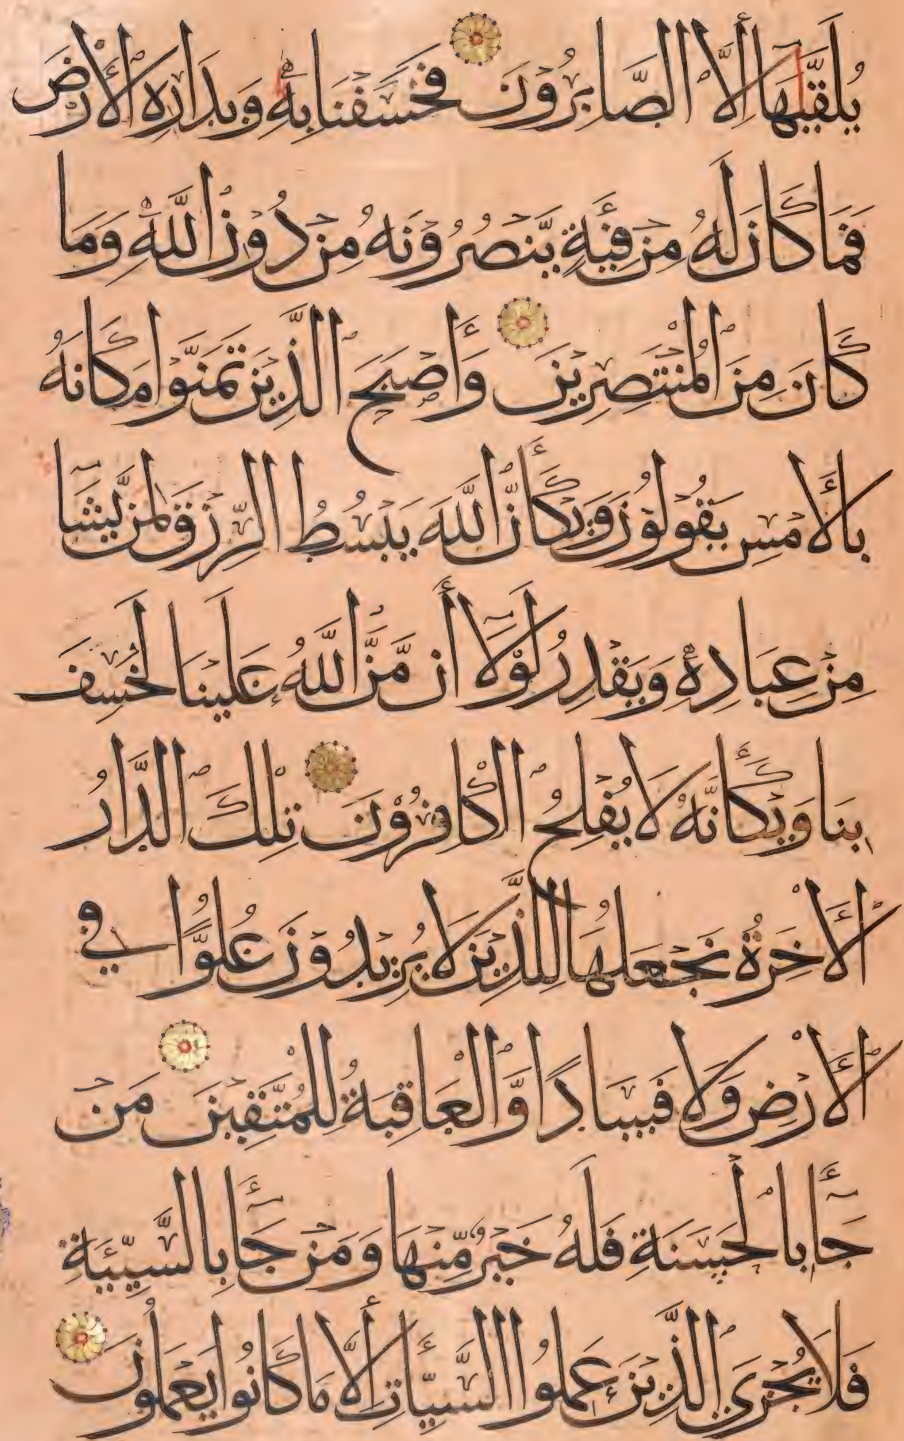 يُلَقَّىٰهَا إِلَّا الصَّابِرُونَ فَخَسَفْنَا بِهِ وَبِدَارِهِ الْأَرْضَ
فَمَا كَانَ لَهُ مِنْ فِئَةٍ يَنْصُرُونَهُ مِنْ دُونِ اللَّهِ وَمَا
كَانَ مِنَ الْمُنْتَصِرِينَ وَأَصْبَحَ الَّذِينَ تَمَنَّوْا مَكَانَهُ
بِالْأَمْسِ يَقُولُونَ وَيْكَأَنَّ اللَّهَ يَبْسُطُ الرِّزْقَ لِمَنْ يَشَا
مِنْ عِبَادِهِ وَيَقْدِرُ لَوْلَا أَنْ مَنَّ اللَّهُ عَلَيْنَا لَخَسَفَ
بِنَا وَيْكَأَنَّهُ لَا يُفْلِحُ الْكَافِرُونَ تِلْكَ الدَّارُ
الْأَخِرَةُ نَجْعَلُهَا لِلَّذِينَ لَا يُرِيدُونَ عُلُوًّا فِي
الْأَرْضِ وَلَا فَسَادًا وَالْعَاقِبَةُ لِلْمُتَّقِينَ مَنْ
جَآ بِالْحَسَنَةِ فَلَهُ خَيْرٌ مِنْهَا وَمَنْ جَآ بِالسَّيِّئَةِ
فَلَا يُجْزَى الَّذِينَ عَمِلُوا السَّيِّئَاتِ إِلَّا مَا كَانُوا يَعْمَلُونَ